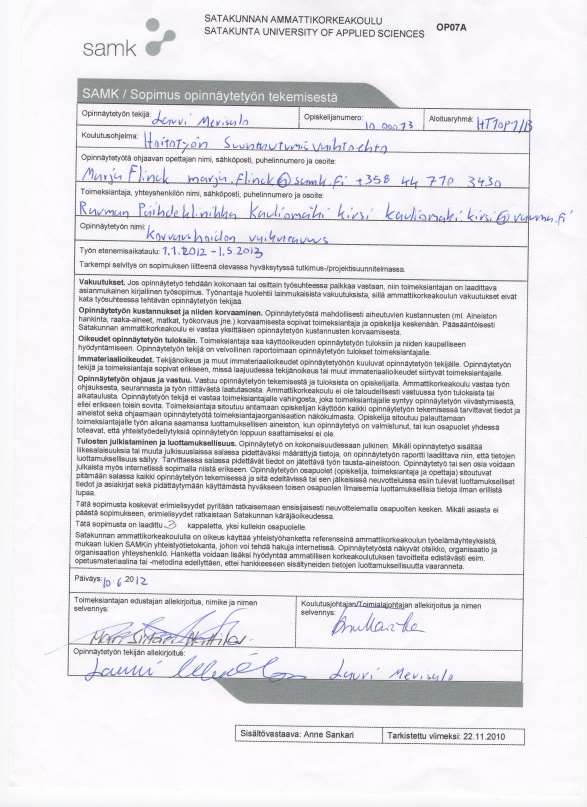 samk
SATAKUNNAN AMMATTIKORKEAKOULU
SATAKUNTA UNIVERSITY OF APPLIED SCIENCES
OP07A
SAMK / Sopimus opinnäytetyön tekemisestä
Opinnäytetyön tekijä: Lauri Merisalo
Opiskelijanumero:
Aloitusryhmä:
Koulutusohjelma: Hoitotyön Suuntautumisvaihtoehto
Opinnäytetyötä ohjaavan opettajan nimi, sähköposti, puhelinnumero ja osoite:
Marju Flinck marju.flinck@samk.fi +358 44 710 3430
Toimeksiantaja, yhteyshenkilön nimi, sähköposti, puhelinnumero ja osoite:
Rauman Päihdeklinikka Kauliomäki Kirsi kauliomaki.kirsi@rauma.fi
Opinnäytetyön nimi:
Korvaushoidon vaikuttavuus
Työn etenemisaikataulu: 1.1.2012 - 1.5.2013
Tarkempi selvitys on sopimuksen liitteenä olevassa hyväksytyssä tutkimus-/projektisuunnitelmassa.
Vakuutukset. Jos opinnäytetyö tehdään kokonaan tai osittain työsuhteessa palkkaa vastaan, niin toimeksiantajan on laadittava
asianmukainen kirjallinen työsopimus. Työnantaja huolehtii lainmukaisista vakuutuksista, sillä ammattikorkeakoulun vakuutukset eivät
kata työsuhteessa tehtävän opinnäytetyön tekijää.
Opinnäytetyön kustannukset ja niiden korvaaminen. Opinnäytetyöstä mahdollisesti aiheutuvien kustannusten (ml. Aineiston
hankinta, raaka-aineet, matkat, työkorvaus jne.) korvaamisesta sopivat toimeksiantaja ja opiskelija keskenään. Pääsääntöisesti
Satakunnan ammattikorkeakoulu ei vastaa yksittäisen opinnäytetyön kustannusten korvaamisesta.
Oikeudet opinnäytetyön tuloksiin. Toimeksiantaja saa käyttöoikeuden opinnäytetyön tuloksiin ja niiden kaupalliseen
hyödyntämiseen. Opinnäytetyön tekijä on velvollinen raportoimaan opinnäytetyön tulokset toimeksiantajalle.
Immateriaalioikeudet. Tekijänoikeus ja muut immateriaalioikeudet opinnäytetyöhön kuuluvat opinnäytetyön tekijälle. Opinnäytetyön
tekijä ja toimeksiantaja sopivat erikseen, missä laajuudessa tekijänoikeus tai muut immateriaalioikeudet siirtyvät toimeksiantajalle.
Opinnäytetyön ohjaus ja vastuu. Vastuu opinnäytetyön tekemisestä ja tuloksista on opiskelijalla. Ammattikorkeakoulu vastaa työn
ohjauksesta, seurannasta ja työn riittävästä laatutasosta. Ammattikorkeakoulu ei ole taloudellisesti vastuussa työn tuloksista tai
aikataulusta. Opinnäytetyön tekijä ei vastaa toimeksiantajalle vahingosta, joka toimeksiantajalle syntyy opinnäytetyön viivästymisestä,
ellei erikseen toisin sovita. Toimeksiantaja sitoutuu antamaan opiskelijan käyttöön kaikki opinnäytetyön tekemisessä tarvittavat tiedot ja
aineistot sekä ohjaamaan opinnäytetyötä toimeksiantajaorganisaation näkökulmasta. Opiskelija sitoutuu palauttamaan
toimeksiantajalle työn aikana saamansa luottamuksellisen aineiston, kun opinnäytetyö on valmistunut, tai kun osapuolet yhdessä
toteavat, että yhteistyöedellytyksiä opinnäytetyön loppuun saattamiseksi ei ole.
Tulosten julkistaminen ja luottamuksellisuus. Opinnäytetyö on kokonaisuudessaan julkinen. Mikäli opinnäytetyö sisältää
liikesalaisuuksia tai muuta julkisuuslaissa salassa pidettäväksi määrättyjä tietoja, on opinnäytetyön raportti laadittava niin, että tietojen
luottamuksellisuus säilyy. Tarvittaessa salassa pidettävät tiedot on jätettävä työn tausta-aineistoon. Opinnäytetyö tai sen osia voidaan
julkaista myös internetissä sopimalla niistä erikseen. Opinnäytetyön osapuolet (opiskelija, toimeksiantaja ja opettaja) sitoutuvat
pitämään salassa kaikki opinnäytetyön tekemisessä ja sitä edeltävissä tai sen jälkeisissä neuvotteluissa esiin tulevat luottamukselliset
tiedot ja asiakirjat sekä pidättäytymään käyttämästä hyväkseen toisen osapuolen ilmaisemia luottamuksellisia tietoja ilman erillistä
lupaa.
Tätä sopimusta koskevat erimielisyydet pyritään ratkaisemaan ensisijaisesti neuvottelemalla osapuolten kesken. Mikäli asiasta ei
päästä sopimukseen, erimielisyydet ratkaistaan Satakunnan käräjäoikeudessa.
Tätä sopimusta on laadittu 3 kappaletta, yksi kullekin osapuolelle.
Satakunnan ammattikorkeakoululla on oikeus käyttää yhteistyöhanketta referenssinä ammattikorkeakoulun työelämäyhteyksistä,
mukaan lukien SAMKin yhteistyötietokanta, johon voi tehdä hakuja internetissä. Opinnäytetyöstä näkyvät otsikko, organisaatio ja
organisaation yhteyshenkilö. Hanketta voidaan lisäksi hyödyntää ammatillisen korkeakoulutuksen tavoitteita edistävästi esim.
opetusmateriaalina tai -metodina edellyttäen, ettei hankkeeseen sisältyneiden tietojen luottamuksellisuutta vaaranneta.
Päiväys: 10.6 2012
Toimeksiantajan edustajan allekirjoitus, nimike ja nimen
selvennys:
Koulutusjohtajan/Toimialajohtajan allekirjoitus ja nimen
selvennys:
Opinnäytetyön tekijän allekirjoitus:
Lauri Merisalo
Sisältövastaava: Anne Sankari
Tarkistettu viimeksi: 22.11.2010